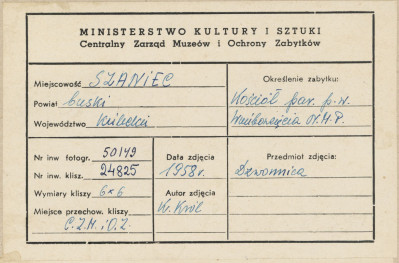 MINISTERSTWO KULTURY I SZTUKI
Centralny Zarząd Muzeów i Ochrony Zabytków
Miejscowość SZANIEC
Powiat buski
Województwo kielecki
Określenie zabytku:
Kościół par. p.w.
Wniebowzięcia N.M.P.
Nr inw fotogr. 50149
Nr inw. klisz. 24825
Wymiary kliszy 6x6
Miejsce przechow. kliszy
C.Z.M.iO.Z.
Data zdjęcia
1958r.
Autor zdjęcia
W. Król
Przedmiot zdjęcia:
Dzwonnica